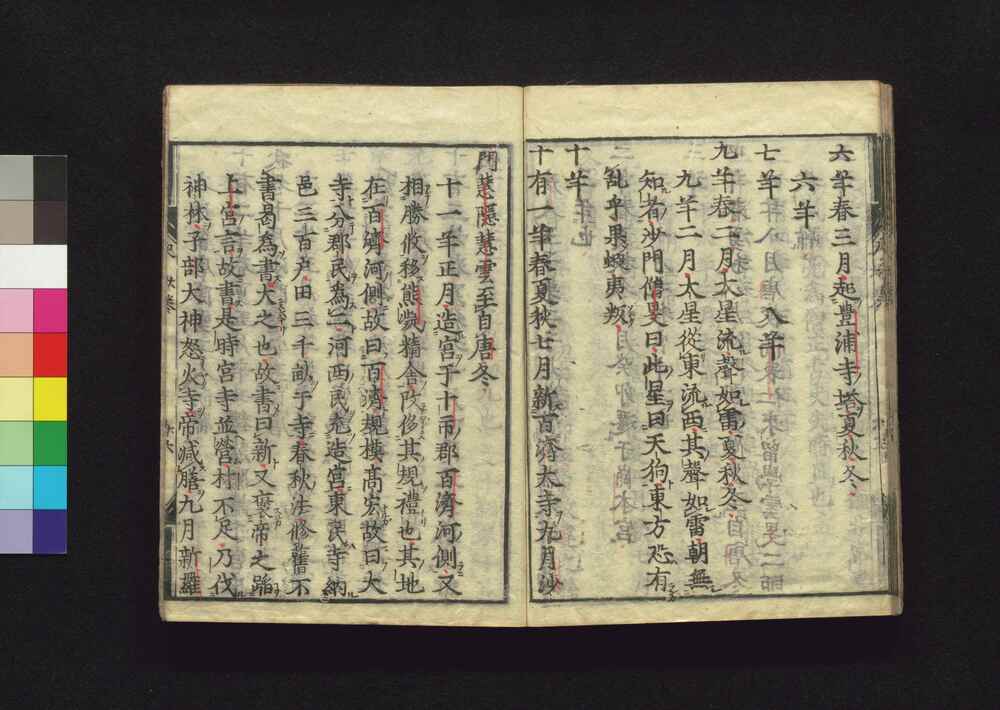 六年春三月起豊浦寺塔夏秋冬
六年
七年 八年
九年春二月大星流聲如雷夏秋冬
九年二月大星從東流西其聲如雷朝無
知者沙門僧旻曰此星曰天狗東方恐有
乱乎果蝦夷叛
十年
十有一年春夏秋七月新百濟大寺九月沙
門慧隱慧雲至自唐冬
十一年正月造宮于十市郡百濟河側又
相勝攸移熊凝精舍改侈其規禮也其地
在百濟河側故曰百濟規模高宏故曰大
寺分郡民為二河西民造宮東民寺納
邑三百戸田三千畝于寺春秋法修舊不
書曷為書大之也故書曰新又褒帝之蹈
上宮言故書是時宮寺並營村不足乃伐
神林子部大神怒火寺帝减膳九月新羅